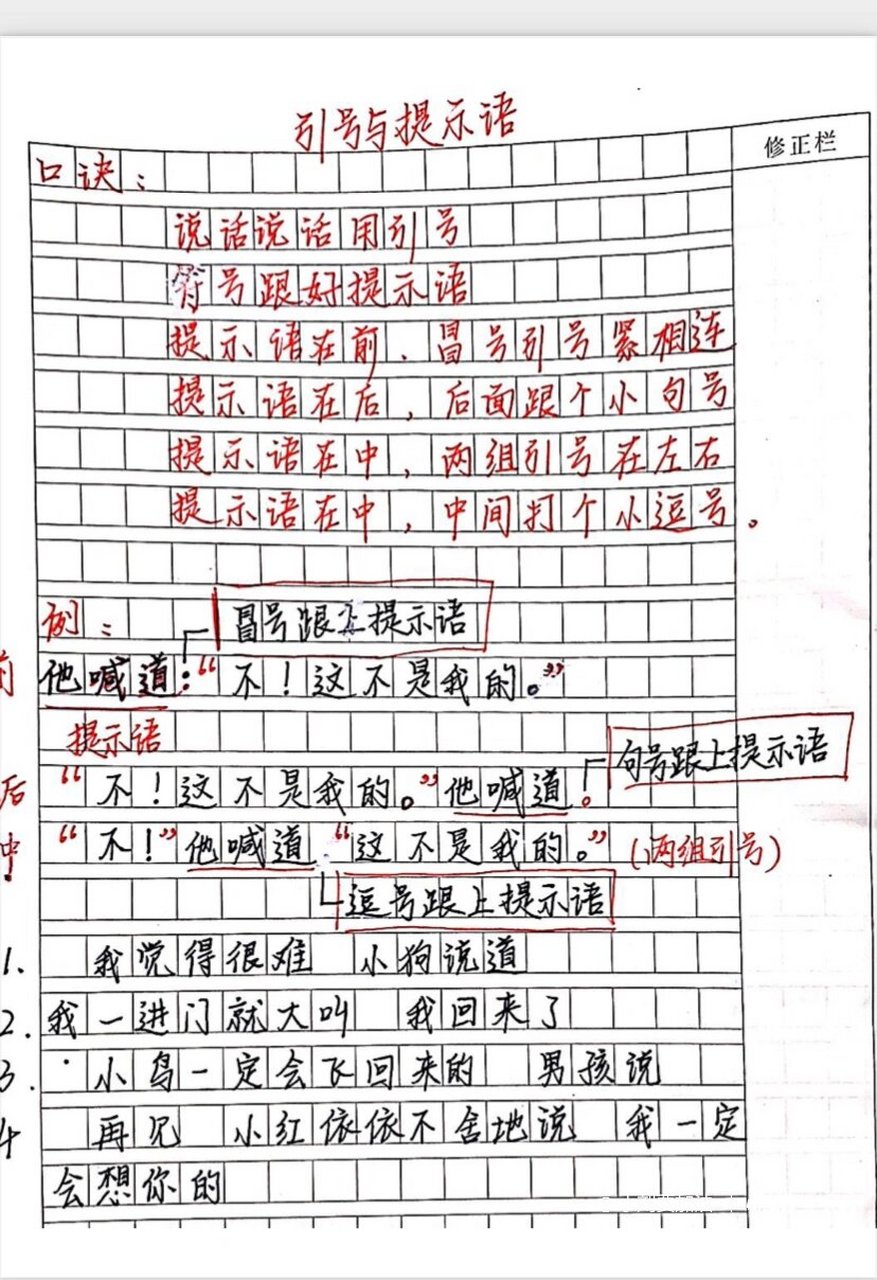 引号与提示语
修正栏
口诀：
说话说话用引号
符号跟好提示语
提示语在前、冒号引号紧相连
提示语在后，后面跟个小句号
提示语在中，两组引号在左右
提示语在中，中间打个小逗号。
例：
冒号跟上提示语
前 他喊道：“不！这不是我的。”
提示语
句号跟上提示语
后 “不！这不是我的。”他喊道。
中 “不！”他喊道，“这不是我的。”（两组引号）
逗号跟上提示语
1. 我觉得很难 小狗说道
2. 我一进门就大叫 我回来了
3. 小鸟一定会飞回来的 男孩说
4 再见 小红依依不舍地说 我一定
会想你的